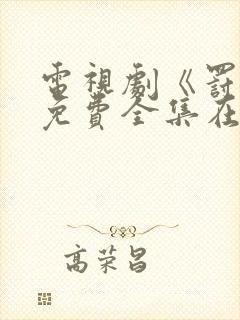 電視劇《罰
免費全集在
高荣昌